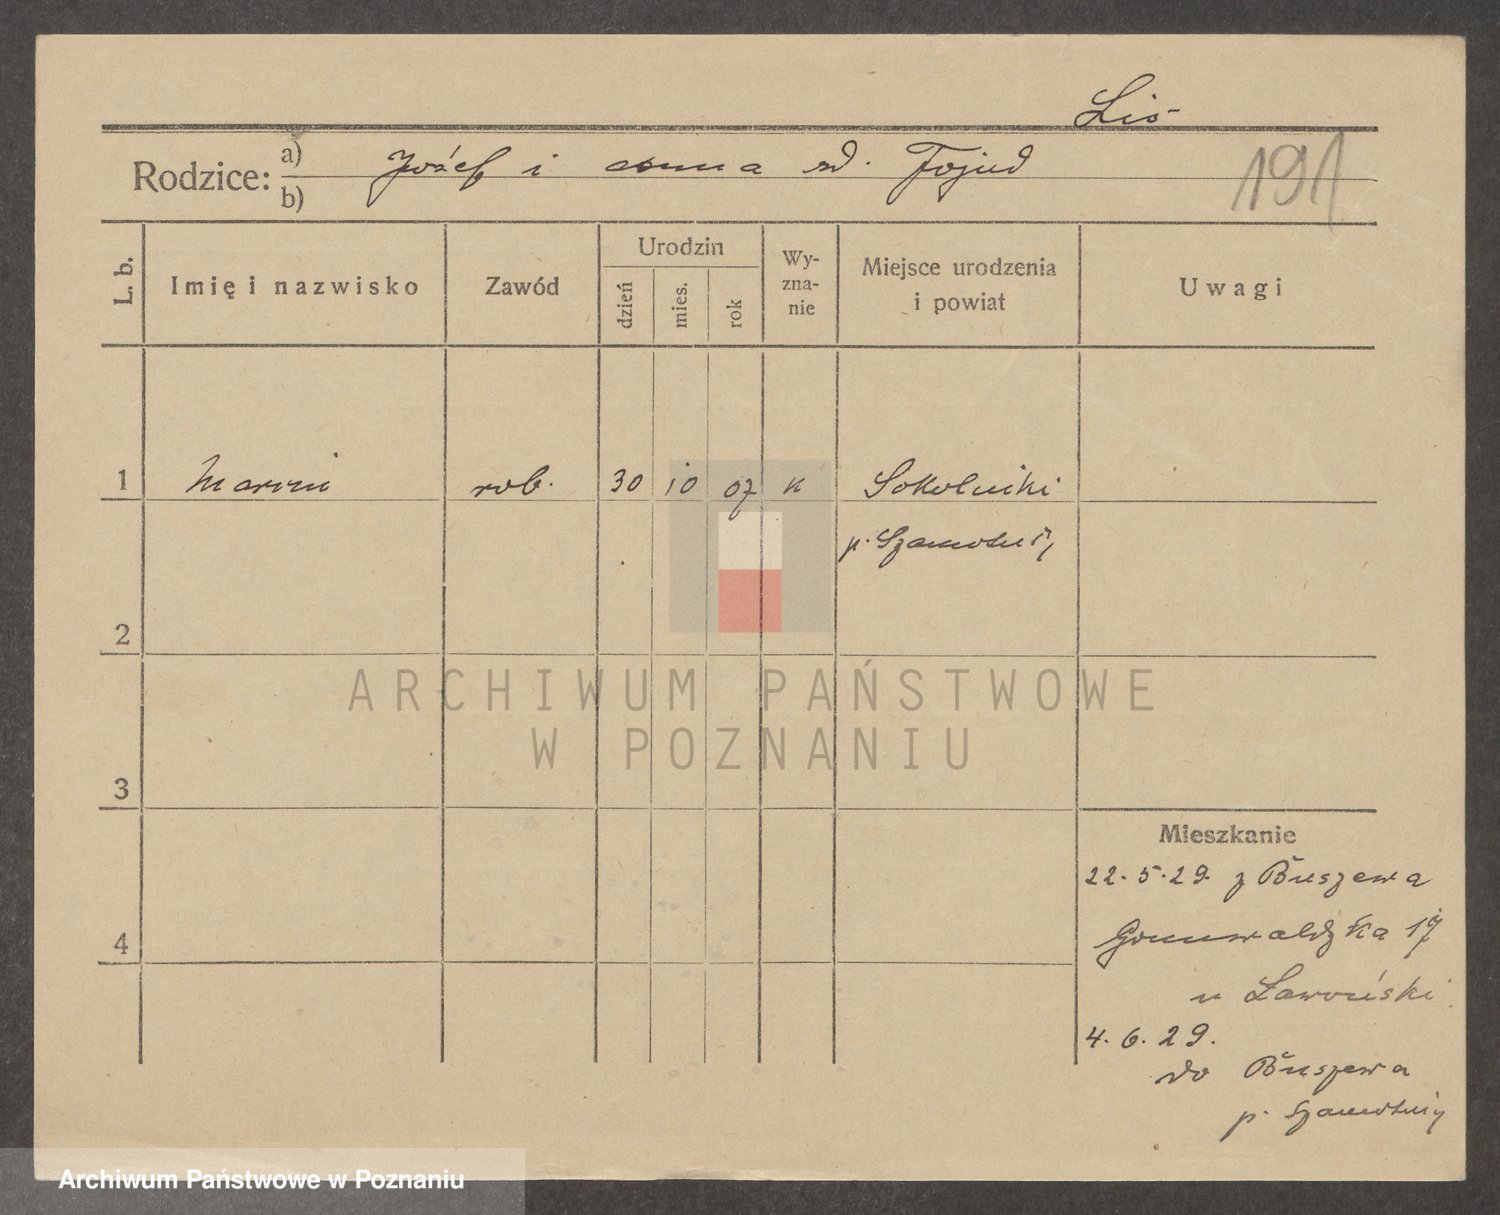 Liś
Rodzice: a) Józef i Anna zd. Fojud
b)
191
L. b. Imię i nazwisko Zawód Urodzin dzień mies. rok Wyznanie Miejsce urodzenia i powiat Uwagi
1 rob. 30 10 07 k Sokolniki
p. Szamotuły
2
3
4
Mieszkanie
22.5.29. z Buszewa
Grunwaldzka 17
u
4.6.29.
do Buszewa
p. Szamotuły
ARCHIWUM PAŃSTWOWE
W POZNANIU
Archiwum Państwowe w Poznaniu